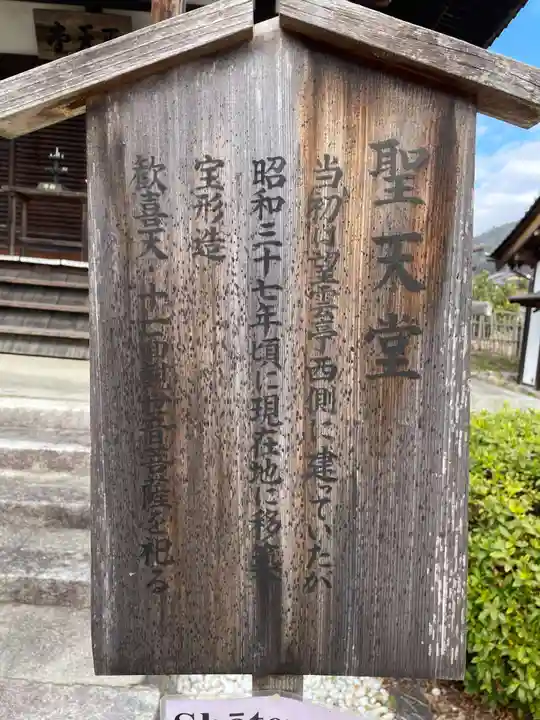 聖天堂
当初は望雲亭西側に建っていたが
昭和三十七年頃に現在地に移築
宝形造
歓喜天・十一面観世音菩薩を祀る
聖天堂
Shōten